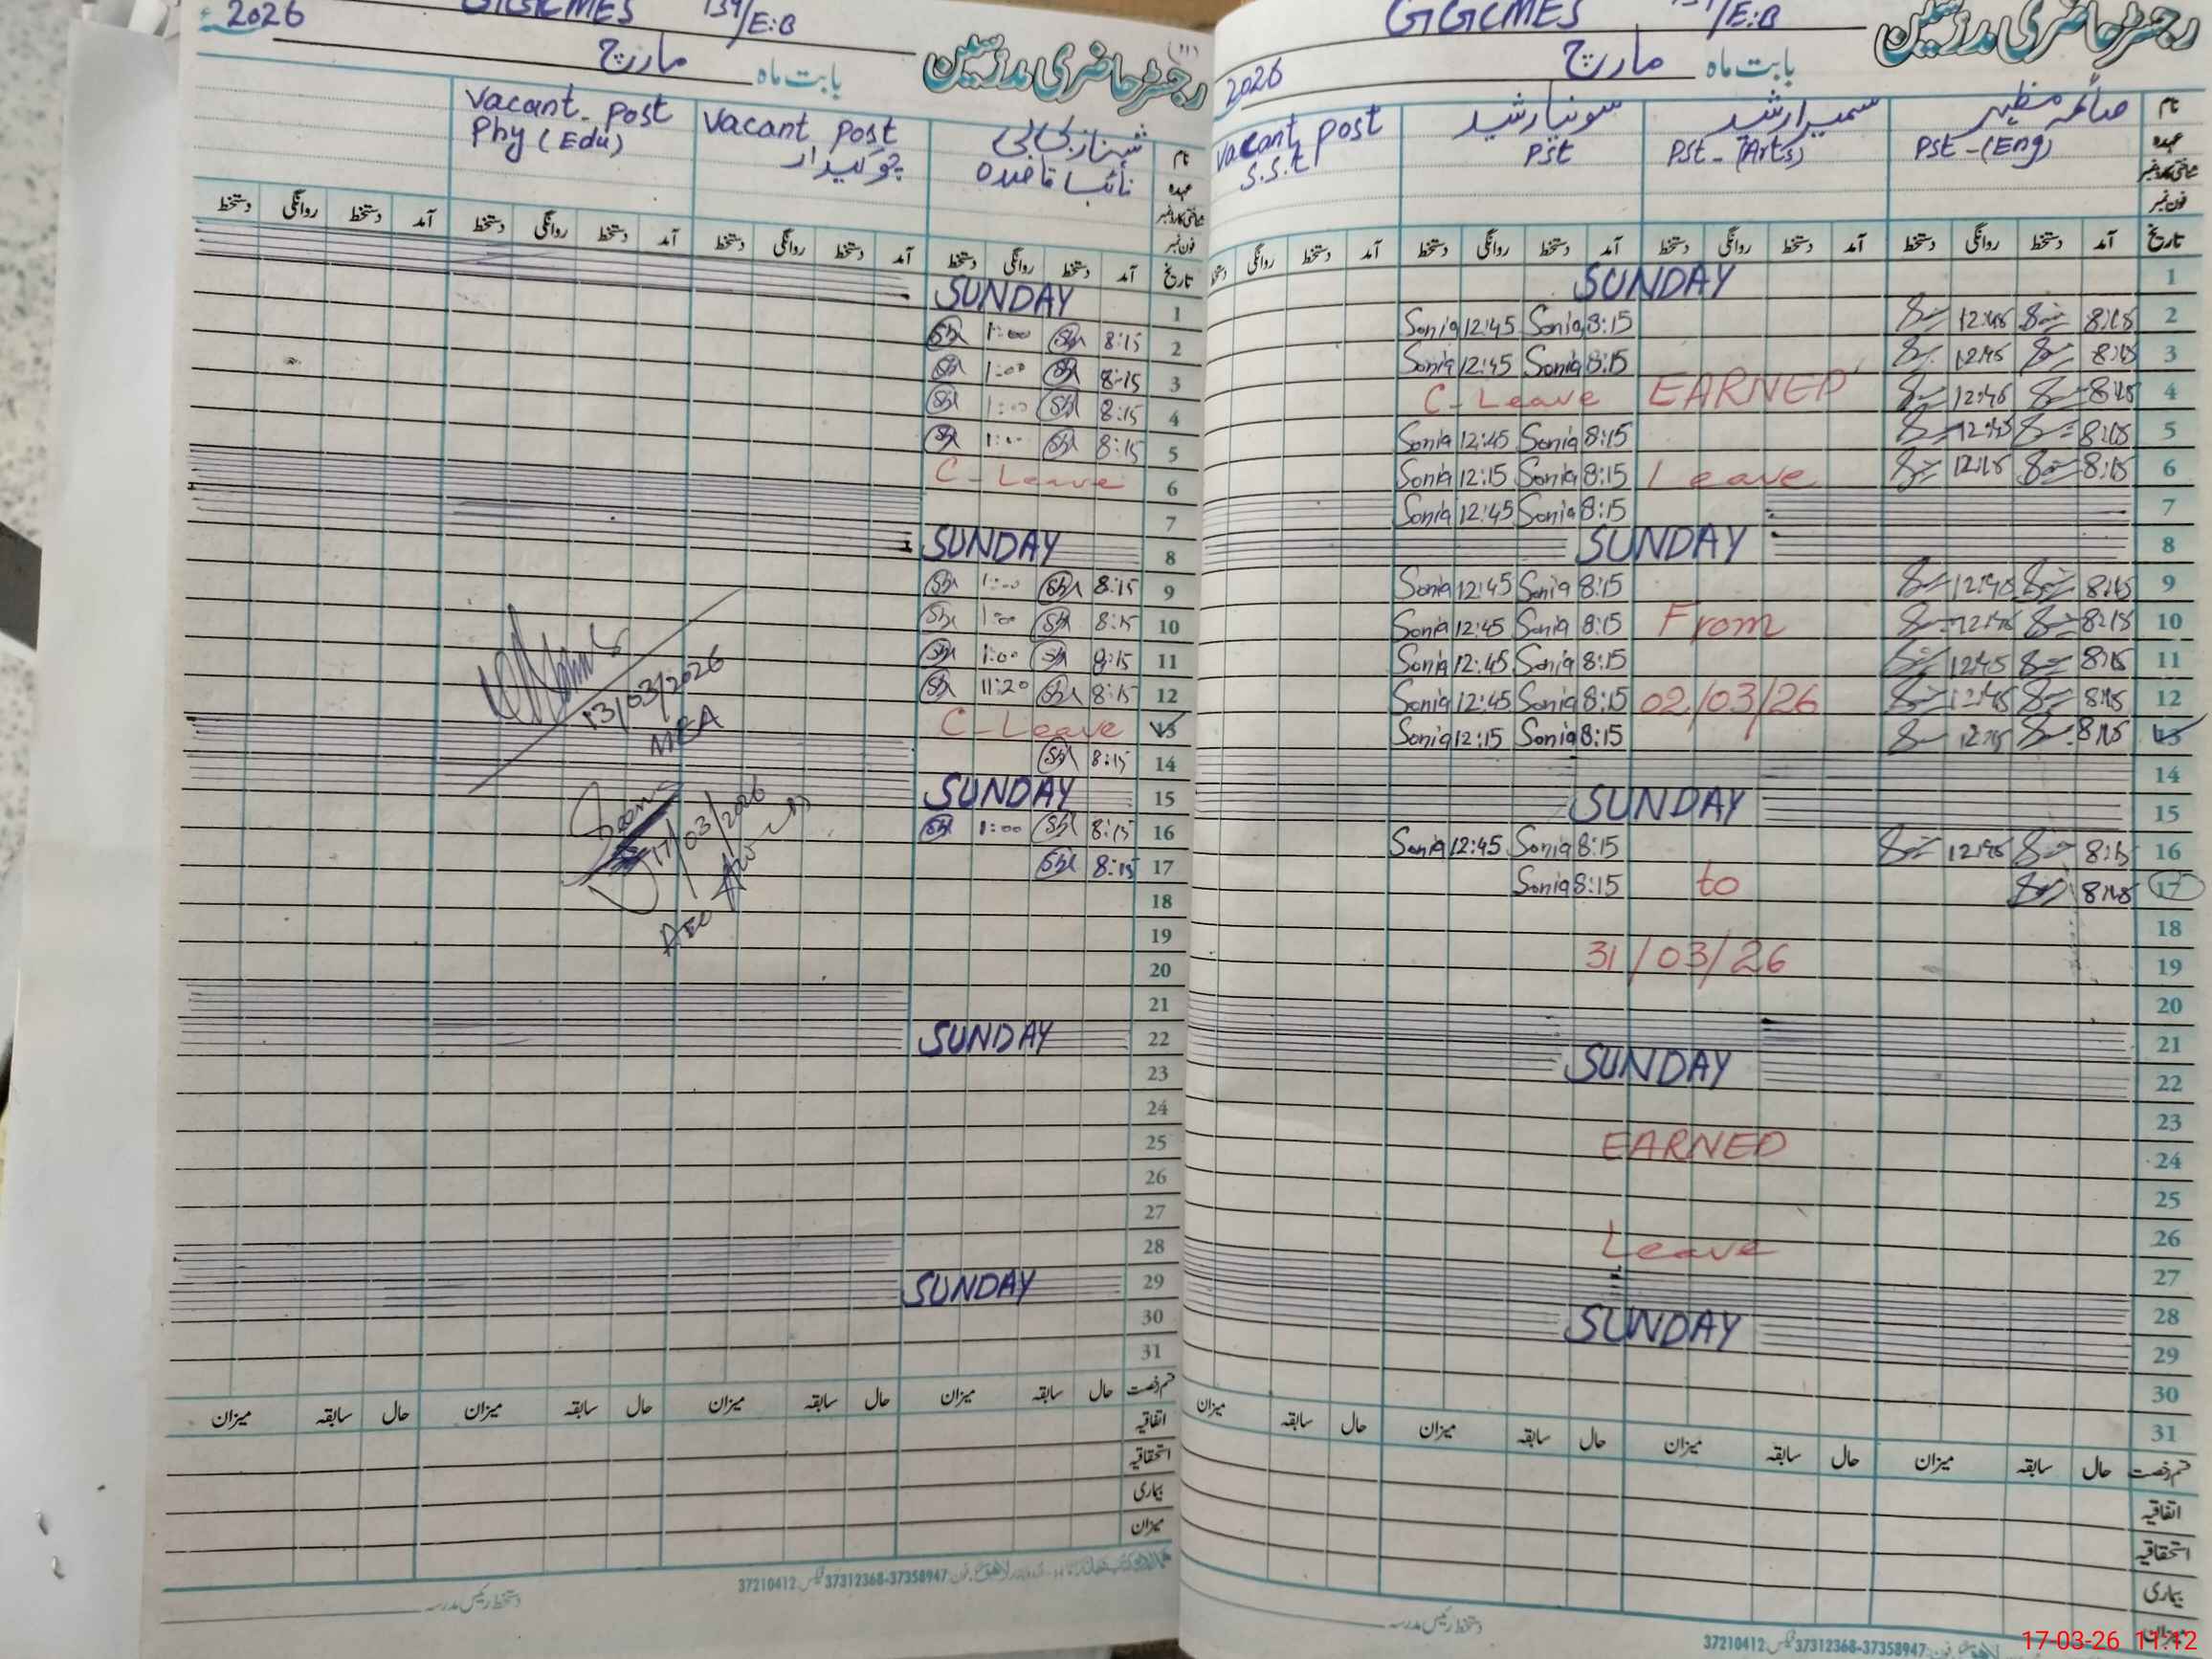 2026 GGCMES 139/E:B
رجسٹر حاضری مدرسین
بابت ماہ مارچ
نام صائمہ مظہر سمیرا ارشد سونیا رشید vacant post
عہدہ Pst-(Eng) Pst-(Arts) Pst S.S.t
شناختی کارڈ نمبر
فون نمبر
تاریخ آمد دستخط روانگی دستخط آمد دستخط روانگی دستخط آمد دستخط روانگی دستخط آمد دستخط روانگی دستخط
1 SUNDAY
2 8:15 12:45 8:15 Sonia 12:45 Sonia
3 8:15 12:45 8:15 Sonia 12:45 Sonia
4 8:15 12:45 EARNED C-Leave
5 8:15 12:45 8:15 Sonia 12:45 Sonia
6 8:15 12:15 Leave 8:15 Sonia 12:15 Sonia
7 8:15 Sonia 12:45 Sonia
8 SUNDAY
9 8:15 12:45 8:15 Sonia 12:45 Sonia
10 8:15 12:45 From 8:15 Sonia 12:45 Sonia
11 8:15 12:45 8:15 Sonia 12:45 Sonia
12 8:15 12:45 02/03/26 8:15 Sonia 12:45 Sonia
13 8:15 12:15 8:15 Sonia 12:15 Sonia
14
15 SUNDAY
16 8:15 12:45 8:15 Sonia 12:45 Sonia
17 8:15 to 8:15 Sonia
18
19 31/03/26
20
21
22 SUNDAY
23
24 EARNED
25
26 Leave
27
28
29 SUNDAY
30
31
قسم رخصت حال سابقہ میزان حال سابقہ میزان حال سابقہ میزان حال سابقہ میزان
اتفاقیہ
استحقاقیہ
بیماری
میزان
دستخط رئیس مدرسہ
37210412 فیکس 37312368-37358947
17-03-26 11:12
2026 GGCMES 139/E:B
(11)
رجسٹر حاضری مدرسین
بابت ماہ مارچ
نام شہناز بی بی vacant post vacant post
عہدہ نائب قاصدہ چوکیدار Phy (Edu)
شناختی کارڈ نمبر
فون نمبر
تاریخ آمد دستخط روانگی دستخط آمد دستخط روانگی دستخط آمد دستخط روانگی دستخط آمد دستخط روانگی دستخط
1 SUNDAY
2 8:15 1:00
3 8:15 1:00
4 8:15 1:00
5 8:15 1:00
6 C-Leave
7
8 SUNDAY
9 8:15 1:00
10 8:15 1:00
11 8:15 1:00
12 8:15 11:20
13 C-Leave
14 8:15
15 SUNDAY
16 8:15 1:00
17 8:15
18
19
20
21
22 SUNDAY
23
24
25
26
27
28
29 SUNDAY
30
31
13/03/2026
MEA
17/03/2026
AEO
قسم رخصت حال سابقہ میزان حال سابقہ میزان حال سابقہ میزان حال سابقہ میزان
اتفاقیہ
استحقاقیہ
بیماری
میزان
37210412 فیکس 37312368-37358947
دستخط رئیس مدرسہ